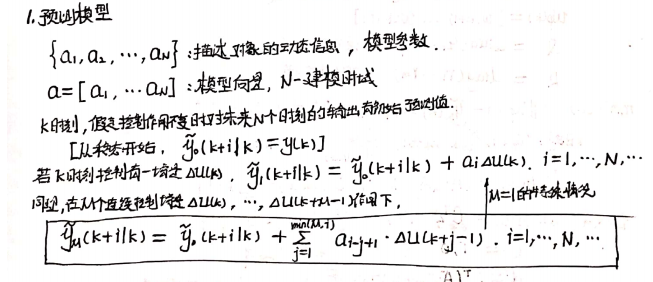 1.预测模型
{a₁,a₂,…,a_N}:描述对象的动态信息,模型参数.
a=[a₁,…a_N]:模型向量,N-建模时域
k时刻,假定控制作用不变时对未来N个时刻的输出有初始预测值
[从稳态开始,ỹ₀(k+i|k)=y(k)]
若k时刻控制有一增量Δu(k).ỹ₁(k+i|k)=ỹ₀(k+i|k)+aᵢΔu(k).i=1,…,N,…
同理,在M个连续控制增量Δu(k),…,Δu(k+M-1)作用下,
M=1的特殊情况
ỹ_M(k+i|k)=ỹ₀(k+i|k)+∑_{j=1}^{min(M,i)} a_{i-j+1}·Δu(k+j-1).i=1,…,N,…